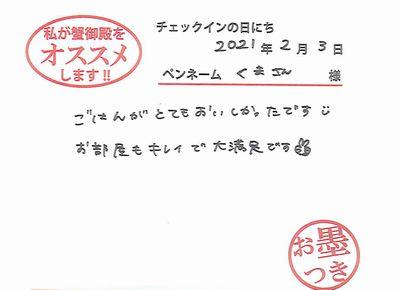 私が蟹御殿を
オススメ
します!!
チェックインの日にち
2021年2月3日
ペンネーム くまさん 様
ごはんがとてもおいしかったです
お部屋もキレイで大満足です
お墨
つき